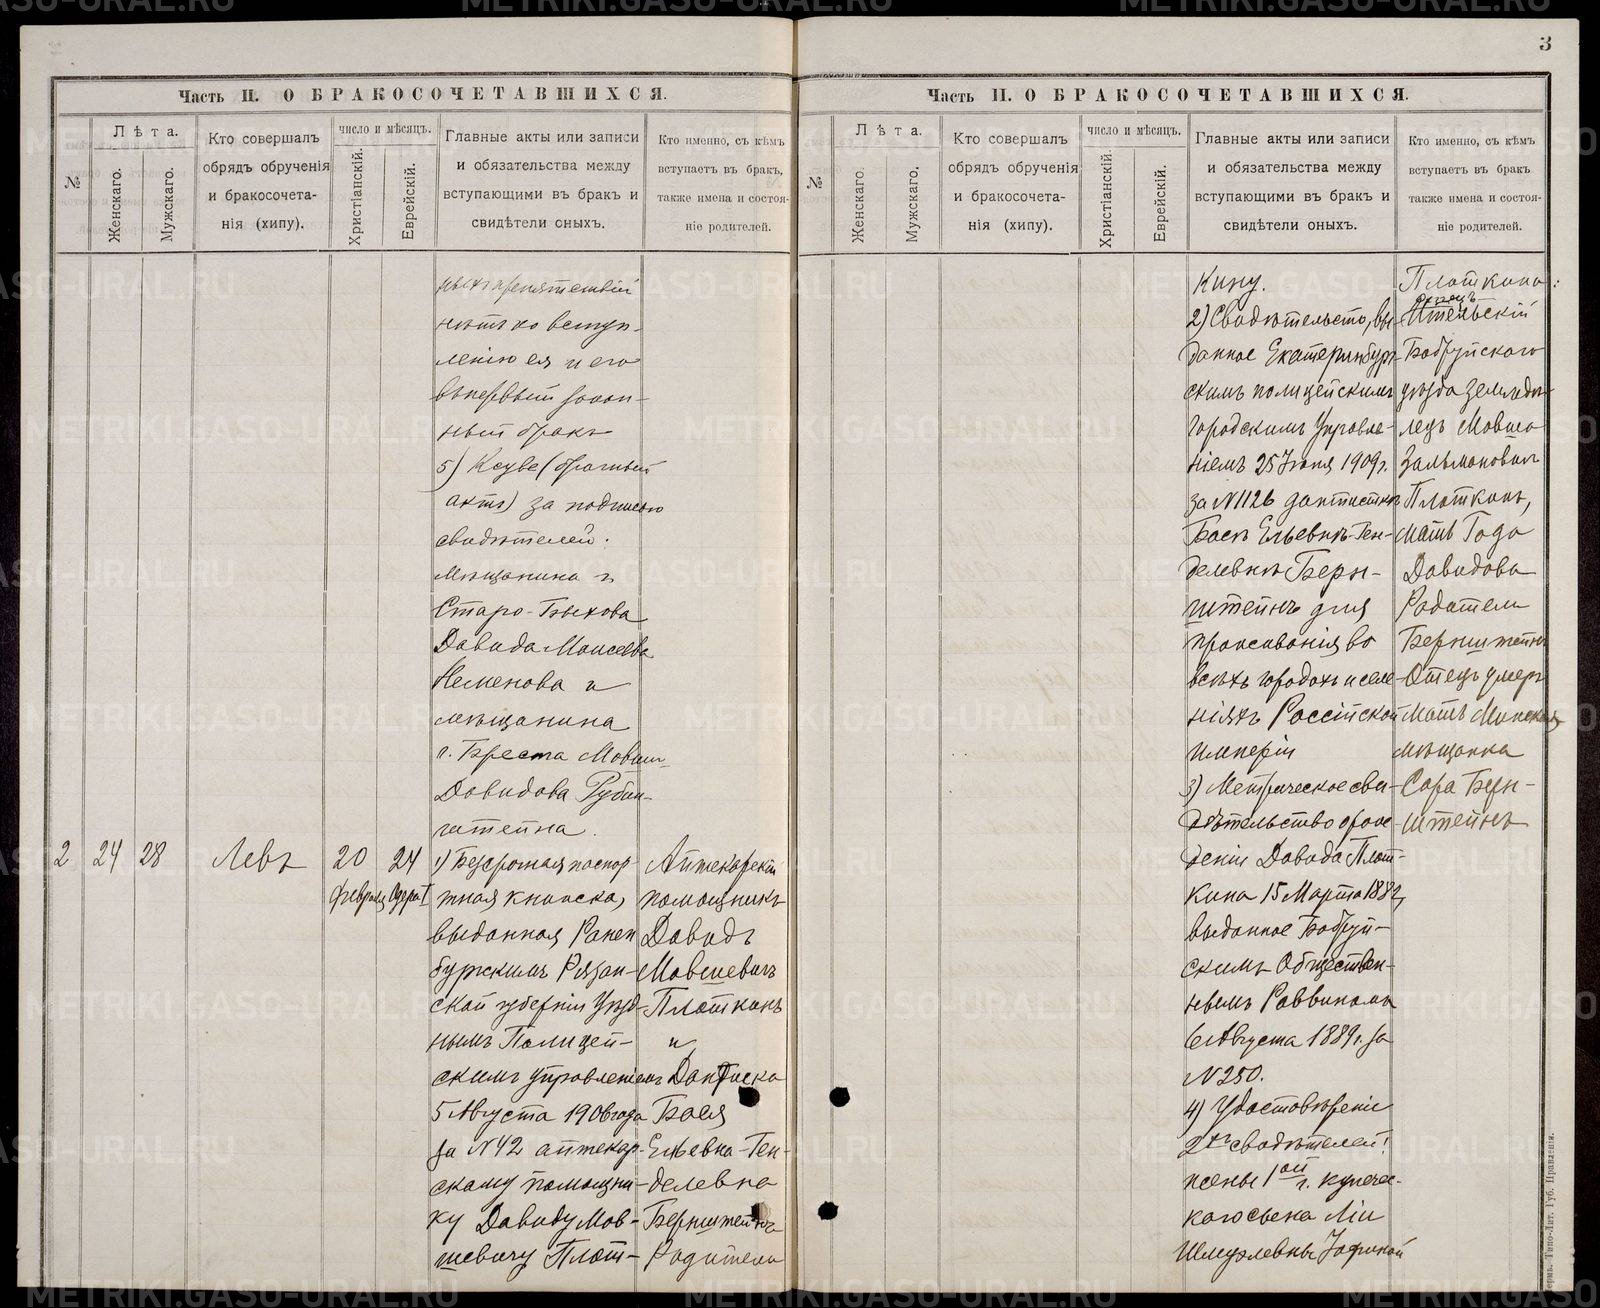 3
Часть II. О БРАКОСОЧЕТАВШИХСЯ.
№
Лѣта.
Женскаго.
Мужскаго.
Кто совершалъ
обрядъ обрученія
и бракосочета-
нія (хипу).
число и мѣсяцъ.
Христіанскій.
Еврейскій.
Главные акты или записи
и обязательства между
вступающими въ бракъ и
свидѣтели оныхъ.
Кто именно, съ кѣмъ
вступаетъ въ бракъ,
также имена и состоя-
ніе родителей.
ныхъ препятствій
нѣтъ ко вступ-
ленію ея и его
въ первый закон-
ный бракъ
5) Ксубе (брачный
актъ) за подписью
свидѣтелей:
мѣщанина г.
Старо-Быхова
Давида Моисеева
Неменова и
мѣщанина
г. Бреста Мовши
Давидова Рубин-
штейна.
2
24
28
Левъ
20
февраля
24
Одера I
1) Безсрочная паспор-
тная книжка,
выданная Ранен
бургскимъ Рязан-
ской губерніи Уѣзд-
нымъ Полицей-
скимъ управленіемъ
5 Августа 1906 года
за №42 аптекар-
скому помощни-
ку Давиду Мов-
шевичу Плот-
Аптекарскій
помощникъ
Давидъ
Мовшевичъ
Плоткинъ
и
Дантистка
Бася
Ельевна-Ген-
делевна
Бернштейнъ
Родители
Часть II. О БРАКОСОЧЕТАВШИХСЯ.
№
Лѣта.
Женскаго.
Мужскаго.
Кто совершалъ
обрядъ обрученія
и бракосочета-
нія (хипу).
число и мѣсяцъ.
Христіанскій.
Еврейскій.
Главные акты или записи
и обязательства между
вступающими въ бракъ и
свидѣтели оныхъ.
Кто именно, съ кѣмъ
вступаетъ въ бракъ
также имена и состоя-
ніе родителей.
кину.
2) Свидѣтельство, вы-
данное Екатеринбург-
скимъ полицейскимъ
городскимъ Управле-
ніемъ 25 Іюня 1909 г.
за №1126 дантисткѣ
Басѣ Ельевнѣ-Ген-
делевнѣ Берн-
штейнъ для
проживанія во
всѣхъ городахъ и селе-
ніяхъ Россійской
имперіи
3) Метрическое сви-
дѣтельство о рож-
деніи Давида Плот-
кина 15 Марта 1882,
выданное Бобруй-
скимъ Обществен-
нымъ Раввиномъ
6 Августа 1889 г. за
№250.
4) Удостовѣреніе
2хъ свидѣтелей:
жены 1ой г. купечес-
каго сына Ліи
Шмуэлевны
Плоткина:
отецъ
Бобруйского
уѣзда земледѣ-
лецъ Мовша
Залмановичъ
Плоткинъ,
мать Года
Давидова
Родители
Бернштейнъ
Отецъ умеръ
Мать Минская
мѣщанка
Сора Берн-
штейнъ
Пермь. Типо-Лит. Губ. Правленія.
METRIKI.GASO-URAL.RU